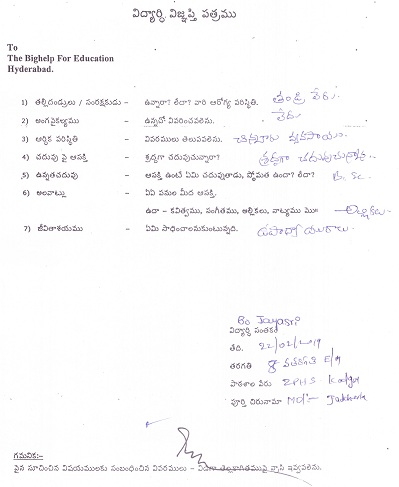 విద్యార్థి విజ్ఞప్తి పత్రము
To
The Bighelp For Education
Hyderabad.
1) తల్లిదండ్రులు / సంరక్షకుడు - ఉన్నారా? లేదా? వారి ఆరోగ్య పరిస్థితి. తండ్రి లేరు.
2) అంగవైకల్యము - ఉన్నచో వివరించవలెను. లేదు
3) ఆర్థిక పరిస్థితి - వివరములు తెలుపవలెను. వ్యవసాయం
4) చదువు పై ఆసక్తి - శ్రద్ధగా చదువుచున్నారా? శ్రద్ధగా చదువుచున్నారు.
5) ఉన్నతచదువు - ఆసక్తి ఉంటే ఏమి చదువుతాడు, స్తోమత ఉందా? లేదా? B.Sc.
6) అలవాట్లు - ఏఏ పనుల మీద ఆసక్తి.
ఉదా - కవిత్వము, సంగీతము, అల్లికలు, నాట్యము మొ॥ అల్లికలు.
7) జీవితాశయము - ఏమి సాధించాలనుకుంటున్నది. ఉపాధ్యాయురాలు.
Bo Jayasri
విద్యార్థి సంతకం
తేది. 22/02/2019
తరగతి 8 వతరగతి E/M
పాఠశాల పేరు ZPHS
పూర్తి చిరునామా
గమనిక:-
పైన సూచించిన విషయములకు సంబంధించిన వివరములు - విడిగా తెల్లకాగితముపై వ్రాసి ఇవ్వవలెను.